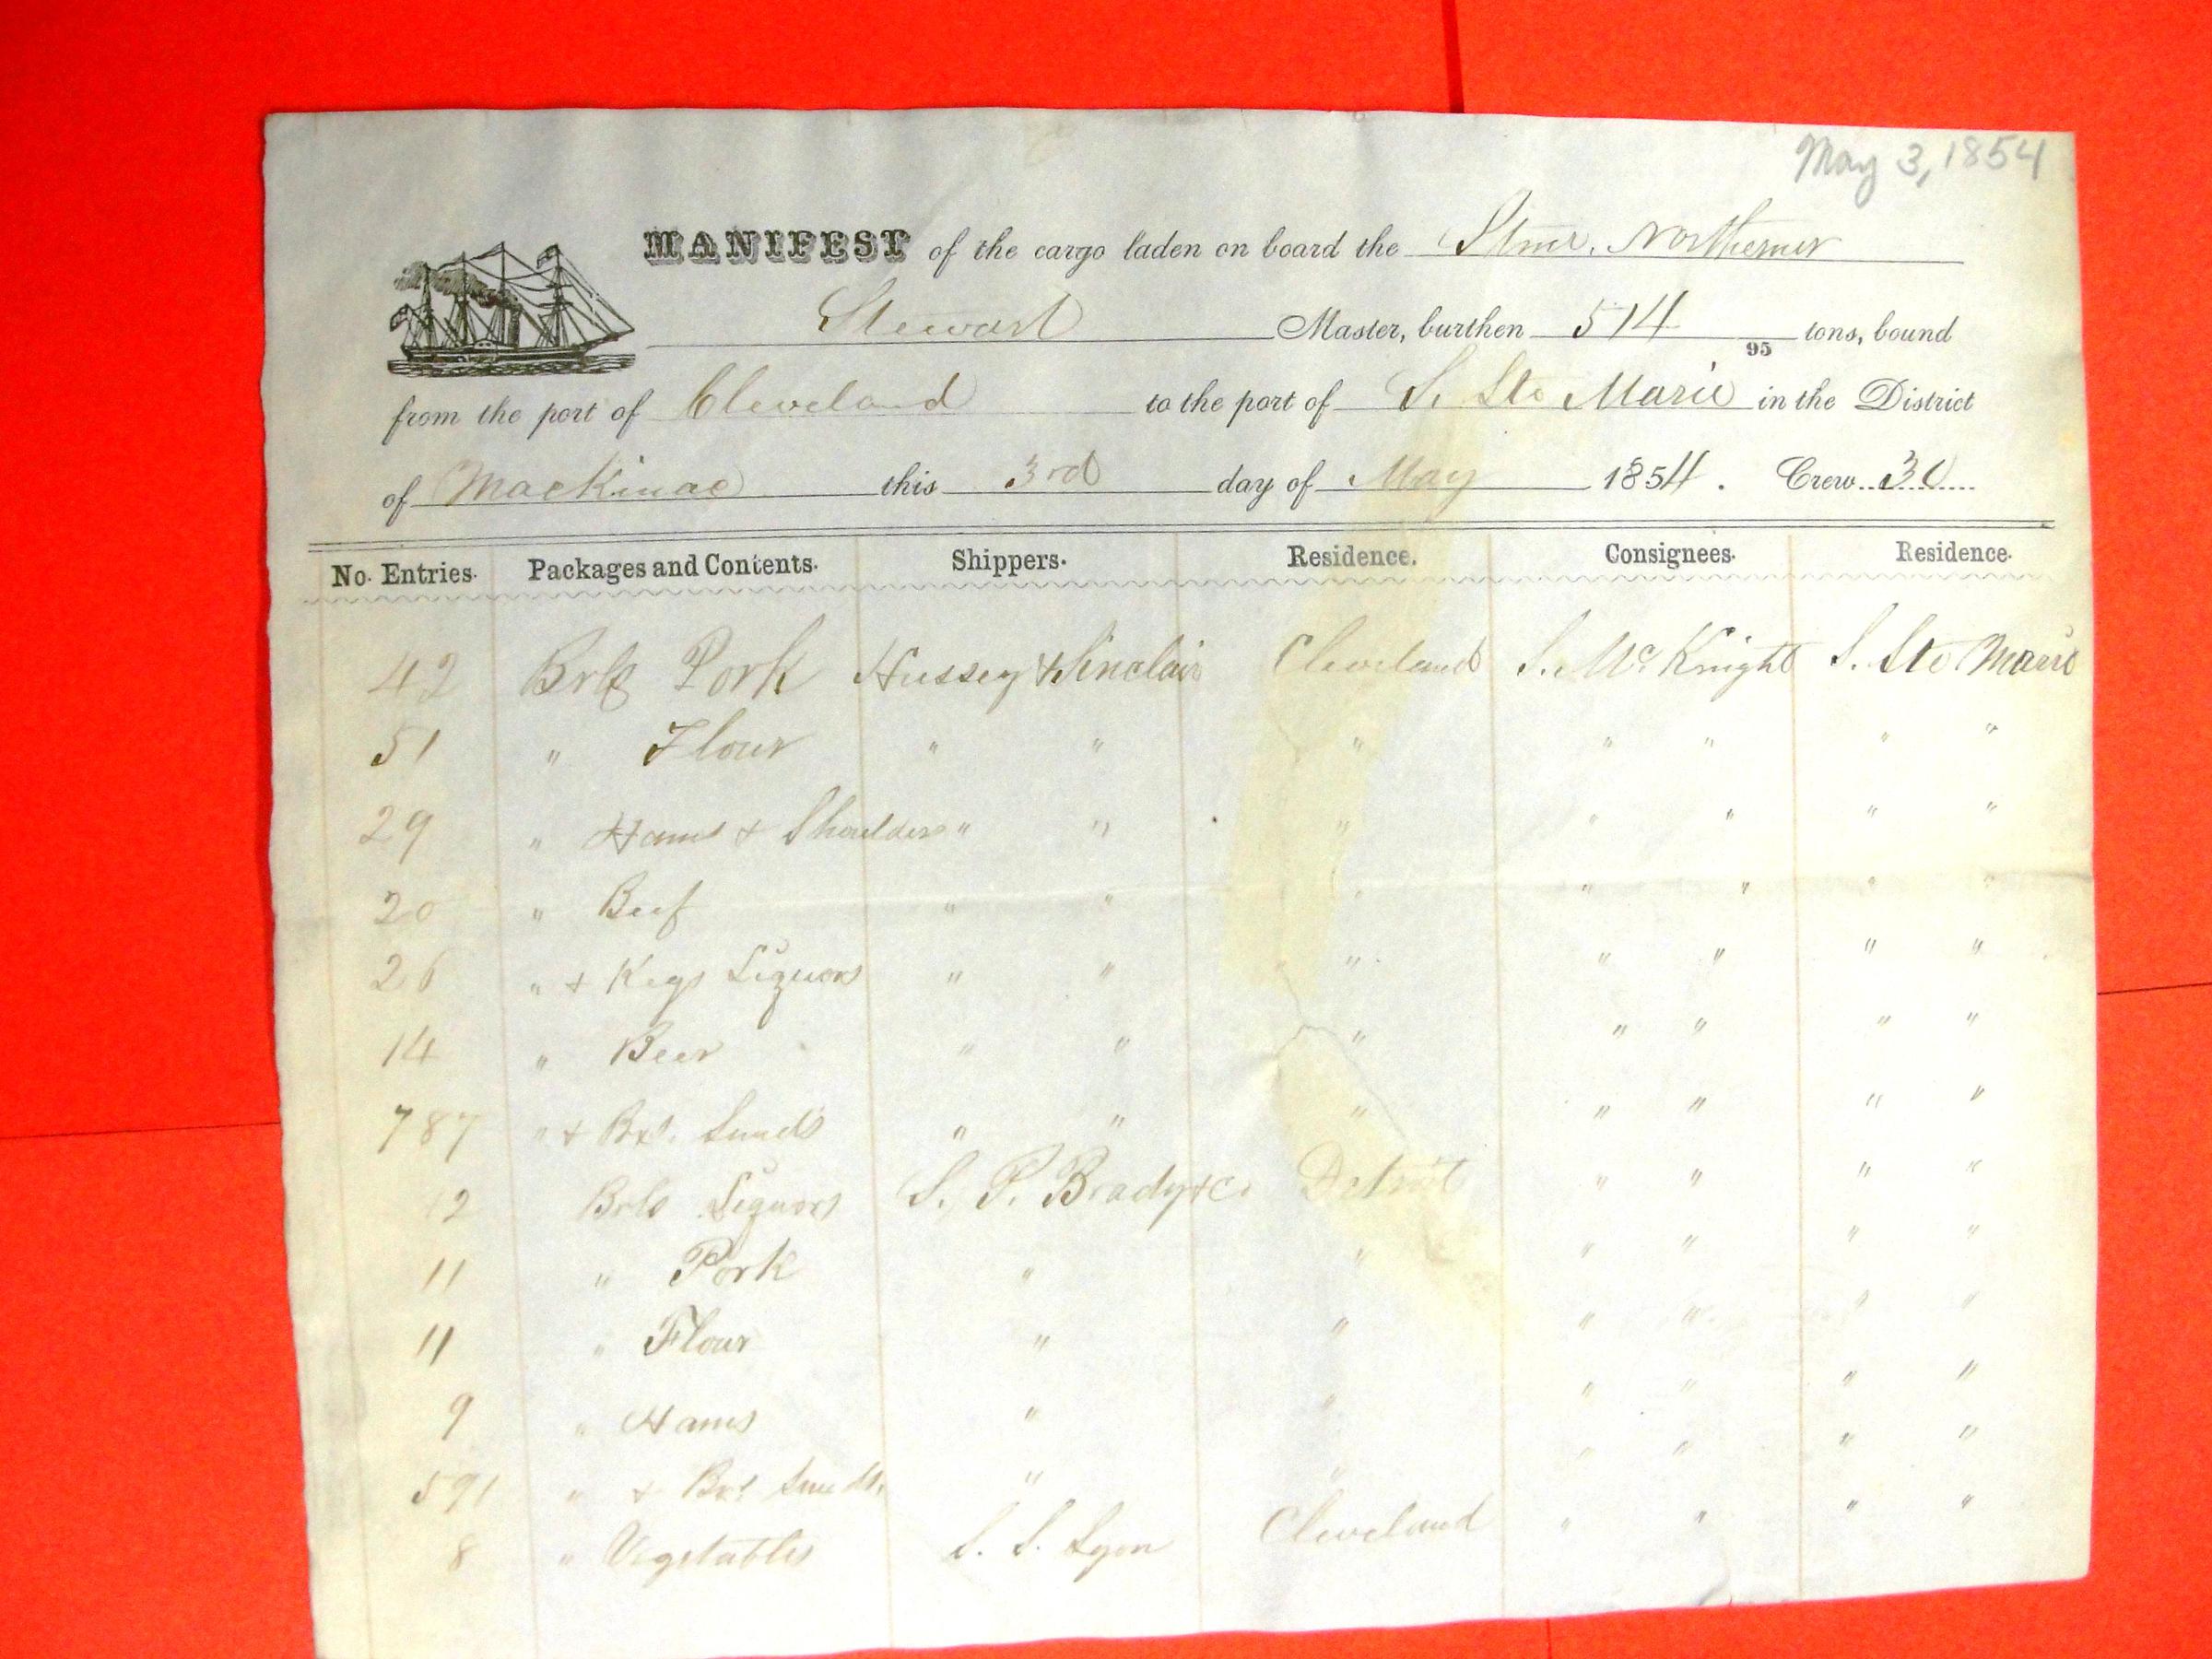 May 3, 1854
MANIFEST of the cargo laden on board the Stmr. Northerner
Stewart Master, burthen 514 95 tons, bound
from the port of Cleveland to the port of S. Ste Marie in the District
of Mackinac this 3rd day of May 1854. Crew 30
No. Entries. Packages and Contents. Shippers. Residence. Consignees. Residence.
42 Brls Pork Hussey & Sinclair Cleveland S. McKnight S. Ste Marie
51 " Flour " " " " " " "
29 " Hams & Shoulders " " " " " " "
20 " Beef " " " " " " "
26 " & Kegs Liquors " " " " " " "
14 " Beer " " " " " " "
787 " & Bxs. Sunds " " " " " " "
12 Brls Liquors S. P. Brady & Co Detroit " " " "
11 " Pork " " " " " "
11 " Flour " " " " " "
9 " Hams " " " " " "
591 " & Bxs Sunds. " " " " " "
8 " Vegetables S. S. Lyon Cleveland " " " "